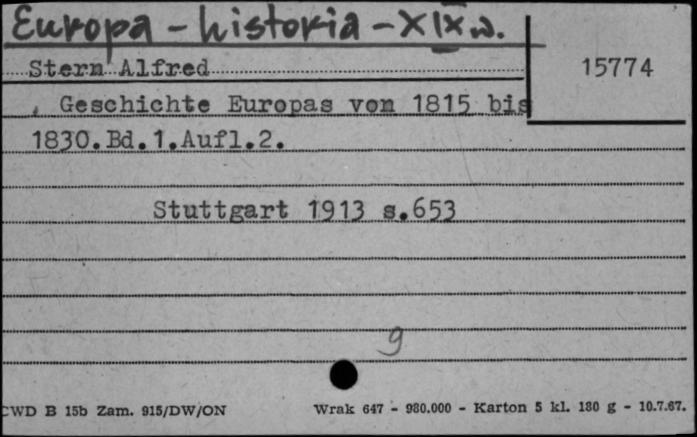 Europa - historia - XIX w.
Stern Alfred
15774
Geschichte Europas von 1815 bis
1830.Bd.1.Aufl.2.
Stuttgart 1913 s.653
9
CWD B 15b Zam. 915/DW/ON
Wrak 647 - 980.000 - Karton 5 kl. 180 g - 10.7.67.